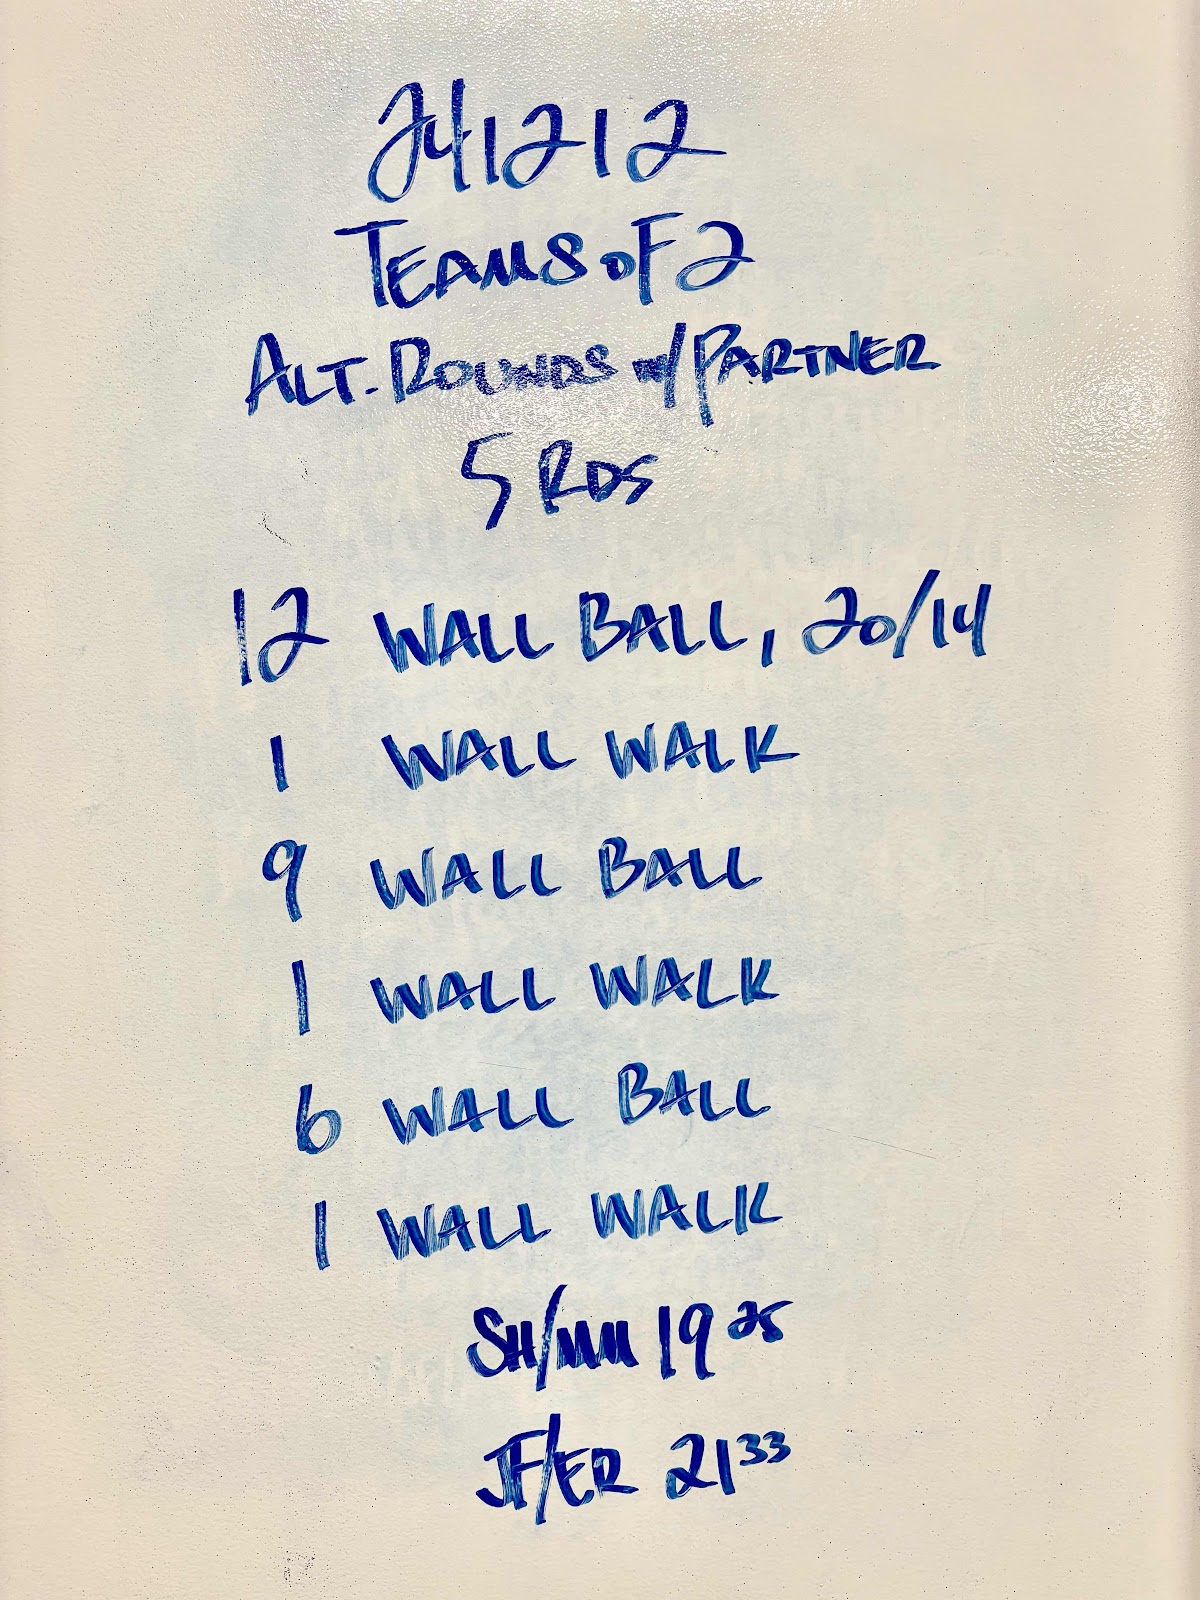 241212
TEAMS OF 2
ALT. ROUNDS w/ PARTNER
5 RDS
12 WALL BALL, 20/14
1 WALL WALK
9 WALL BALL
1 WALL WALK
6 WALL BALL
1 WALL WALK
SH/MM 19 25
JF/ER 21 33